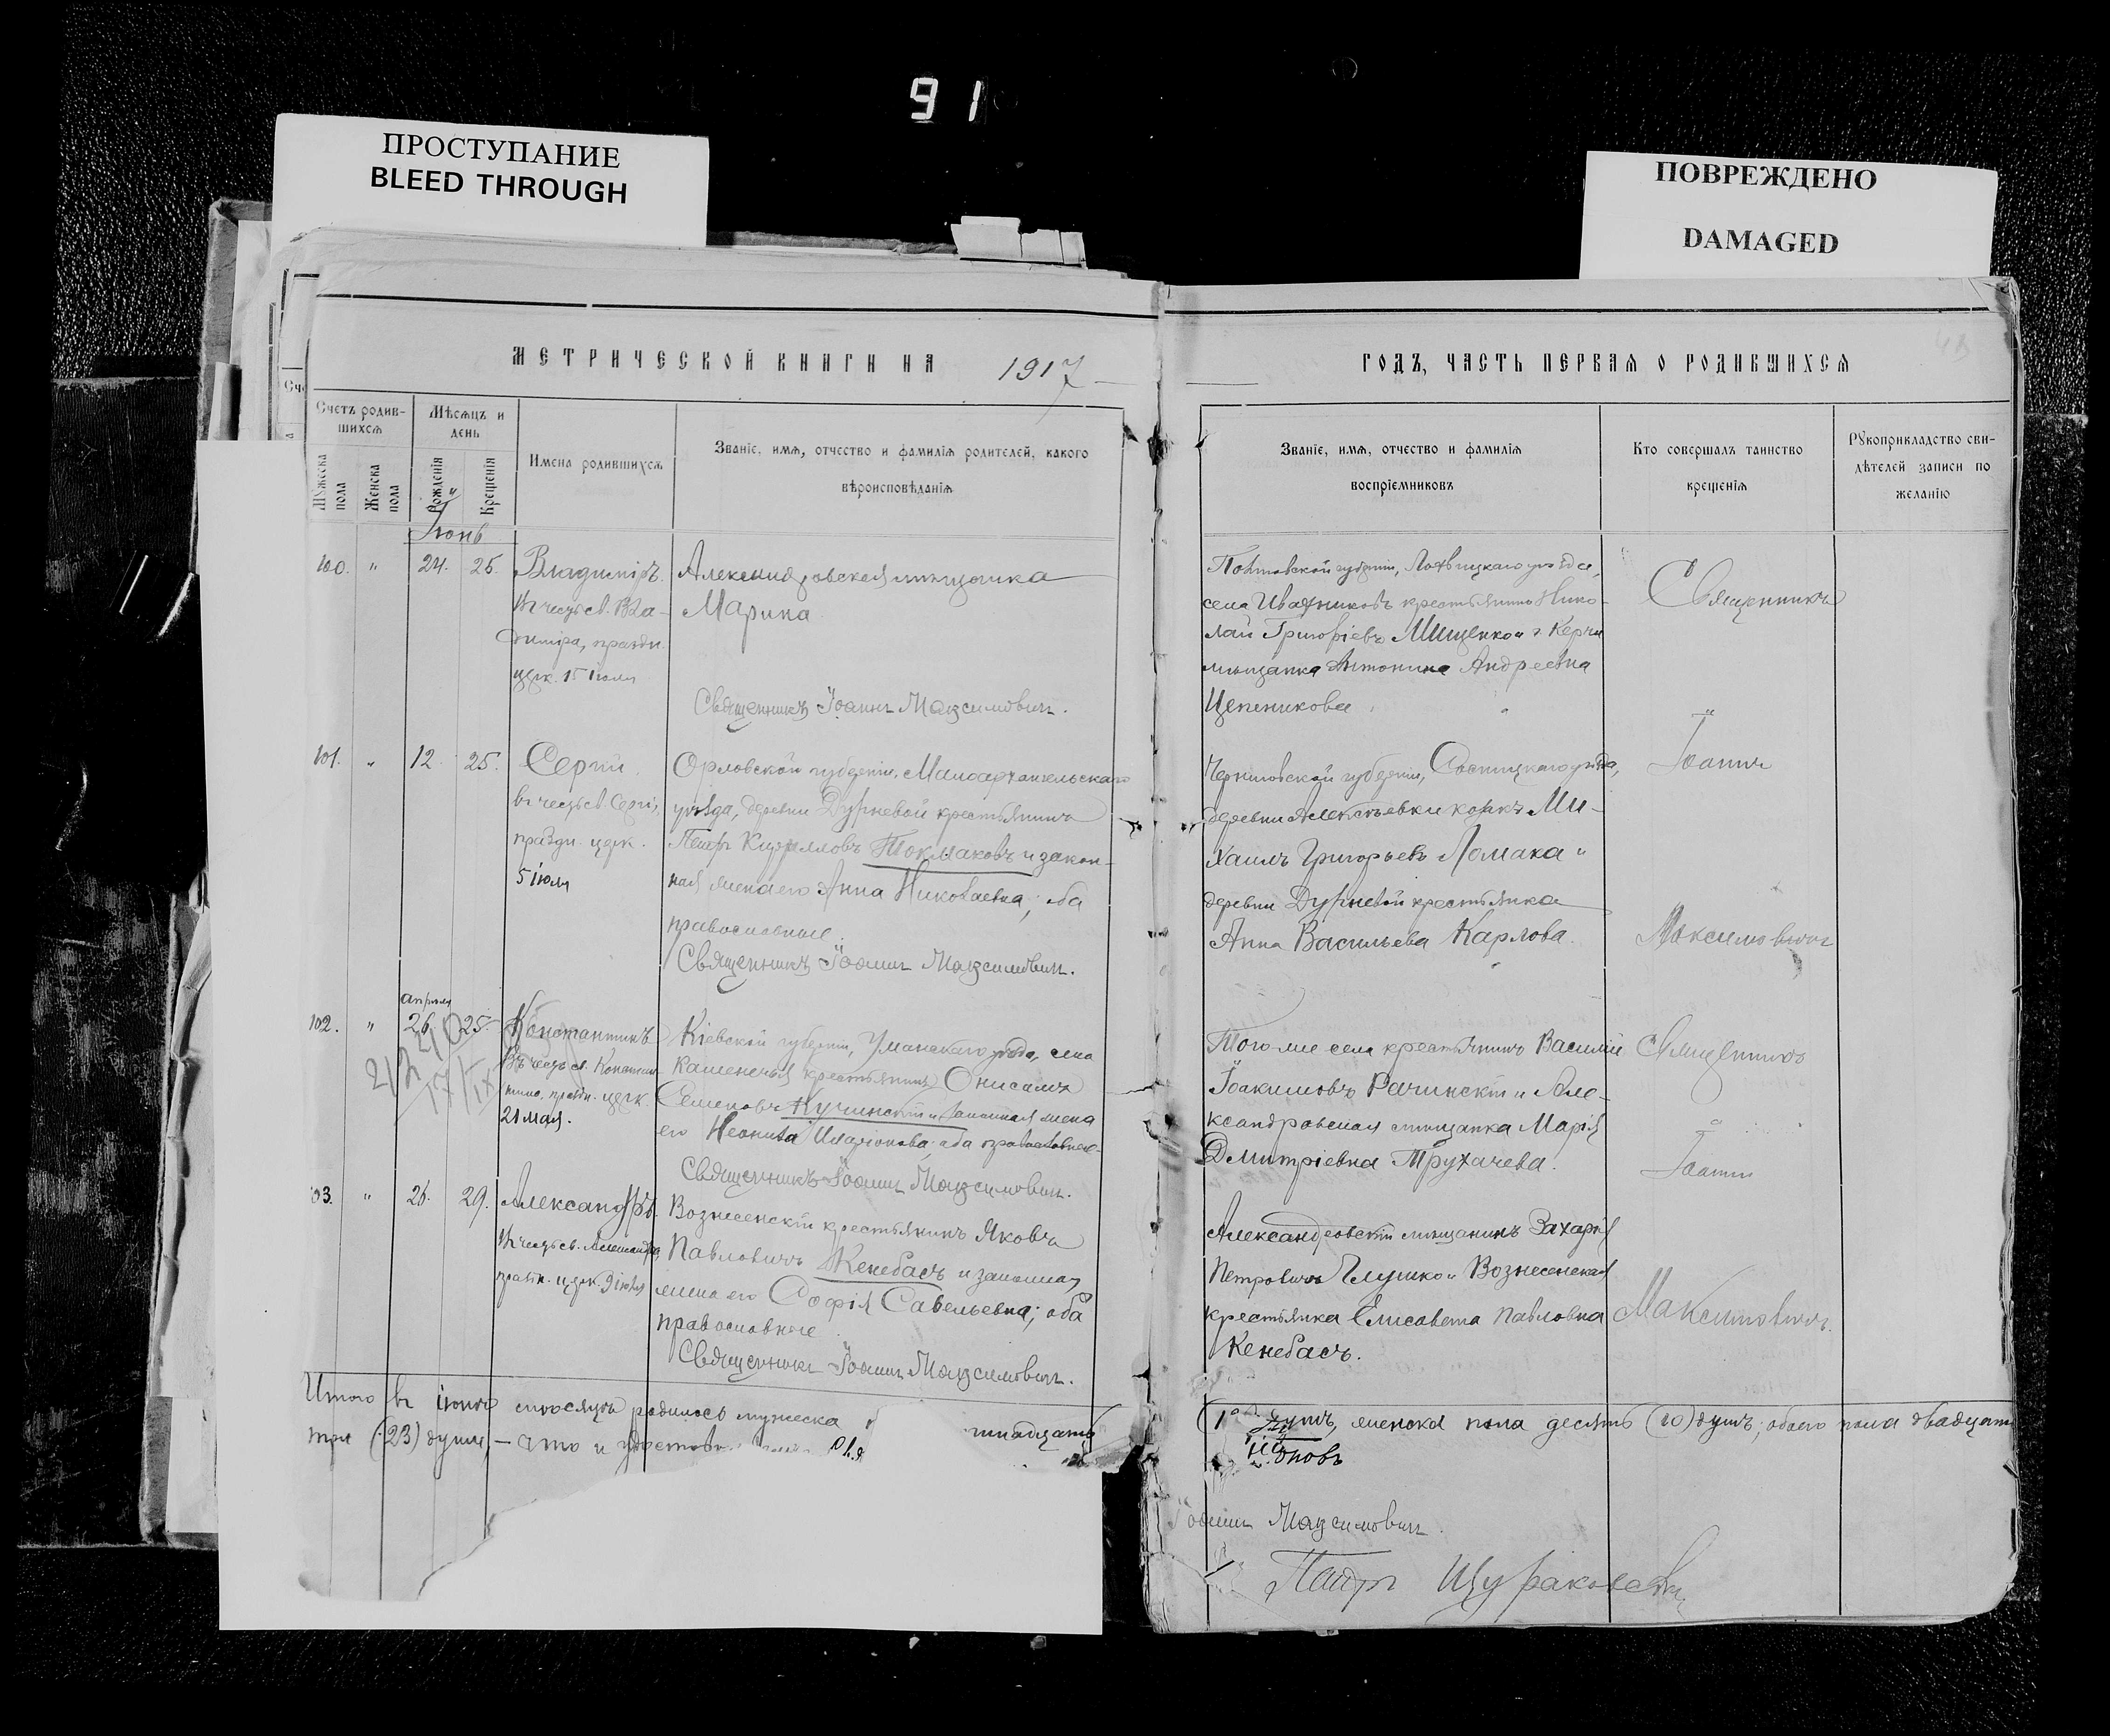 91
ПРОСТУПАНИЕ
BLEED THROUGH
ПОВРЕЖДЕНО
DAMAGED
МЕТРИЧЕСКОЙ КНИГИ НА 1917
Счетъ родив-
шихся
Мужеска пола
Женска пола
Мѣсяцъ и
день
Рожденія
Крещенія
Имена родившихся
Званіе, имя, отчество и фамилія родителей, какого
вѣроисповѣданія
Іюнь
100. " 24. 25. Владиміръ.
въ честь св. Вла-
диміра, праздн.
церк. 15 іюля
Александровская мѣщанка
Марина
Священникъ Іоаннъ Максимовичъ.
101. " 12. 25. Сергій.
въ честь св. Сергія,
праздн. церк.
5 іюля
Орловской губерніи, Малоархангельскаго
уѣзда, деревни Дурневой крестьянинъ
Петръ Кирилловъ Токмаковъ и закон-
ная жена его Анна Николаевна; оба
православные.
Священникъ Іоаннъ Максимовичъ.
апрѣля
102. " 26. 25. Константинъ
въ честь св. Констан-
тина, праздн. церк.
21 мая.
Кіевской губерніи, Уманскаго уѣзда, села
крестьянинъ Онисимъ
Семеновъ Кучинскій и законная жена
его оба православные.
Священникъ Іоаннъ Максимовичъ.
103. " 26. 29. Александръ.
въ честь св. Александра
праздн. церк. 9 іюня
Вознесенскій крестьянинъ Яковъ
Павловичъ Кенебасъ и законная
жена его Софія Савельевна; оба
православные
Священникъ Іоаннъ Максимовичъ.
Итого въ іюнѣ мѣсяцѣ родилось мужеска
три (23) души, — что и
ГОДЪ, ЧАСТЬ ПЕРВАЯ О РОДИВШИХСЯ
Званіе, имя, отчество и фамилія
воспріемниковъ
Кто совершалъ таинство
крещенія
Рукоприкладство сви-
дѣтелей записи по
желанію
Полтавской губерніи, Лохвицкаго уѣзда,
села крестьянинъ Нико-
лай Григоріевъ Мищенко и г. Керчи
мѣщанка Антонина Андреевна
Цепеникова.
Священникъ
Черниговской губерніи, Сосницкаго уѣзда,
деревни Алексѣевки козакъ Ми-
хаилъ Григорьевъ Ломака и
деревни Дурневой крестьянка
Анна Васильева Карлова.
Іоаннъ
Максимовичъ
Того же села крестьянинъ Василій
Іоакимовъ Рачинскій и Але-
ксандровская мѣщанка Марія
Дмитріевна Трухачева.
Священникъ
Іоаннъ
Александровскій мѣщанинъ Захарій
Петровичъ Глушко и Вознесенская
крестьянка Елисавета Павловна
Кенебасъ.
Максимовичъ.
душъ, женска пола десять (10) душъ; обоего пола двадцать
Іоаннъ Максимовичъ.